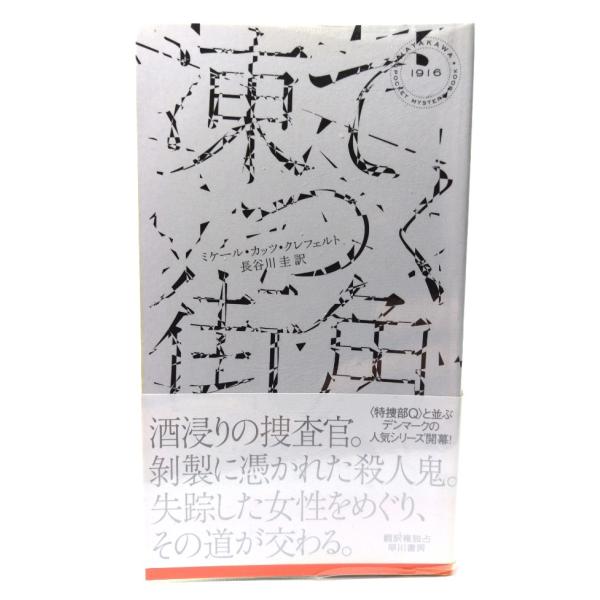 凍てつく街角
HAYAKAWA
1916
POCKET MYSTERY BOOK
ミケール・カッツ・クレフェルト
長谷川圭訳
〈特捜部Q〉と並ぶ
デンマークの
人気シリーズ開幕!
酒浸りの捜査官。
剝製に憑かれた殺人鬼。
失踪した女性をめぐり、
その道が交わる。
翻訳権独占
早川書房